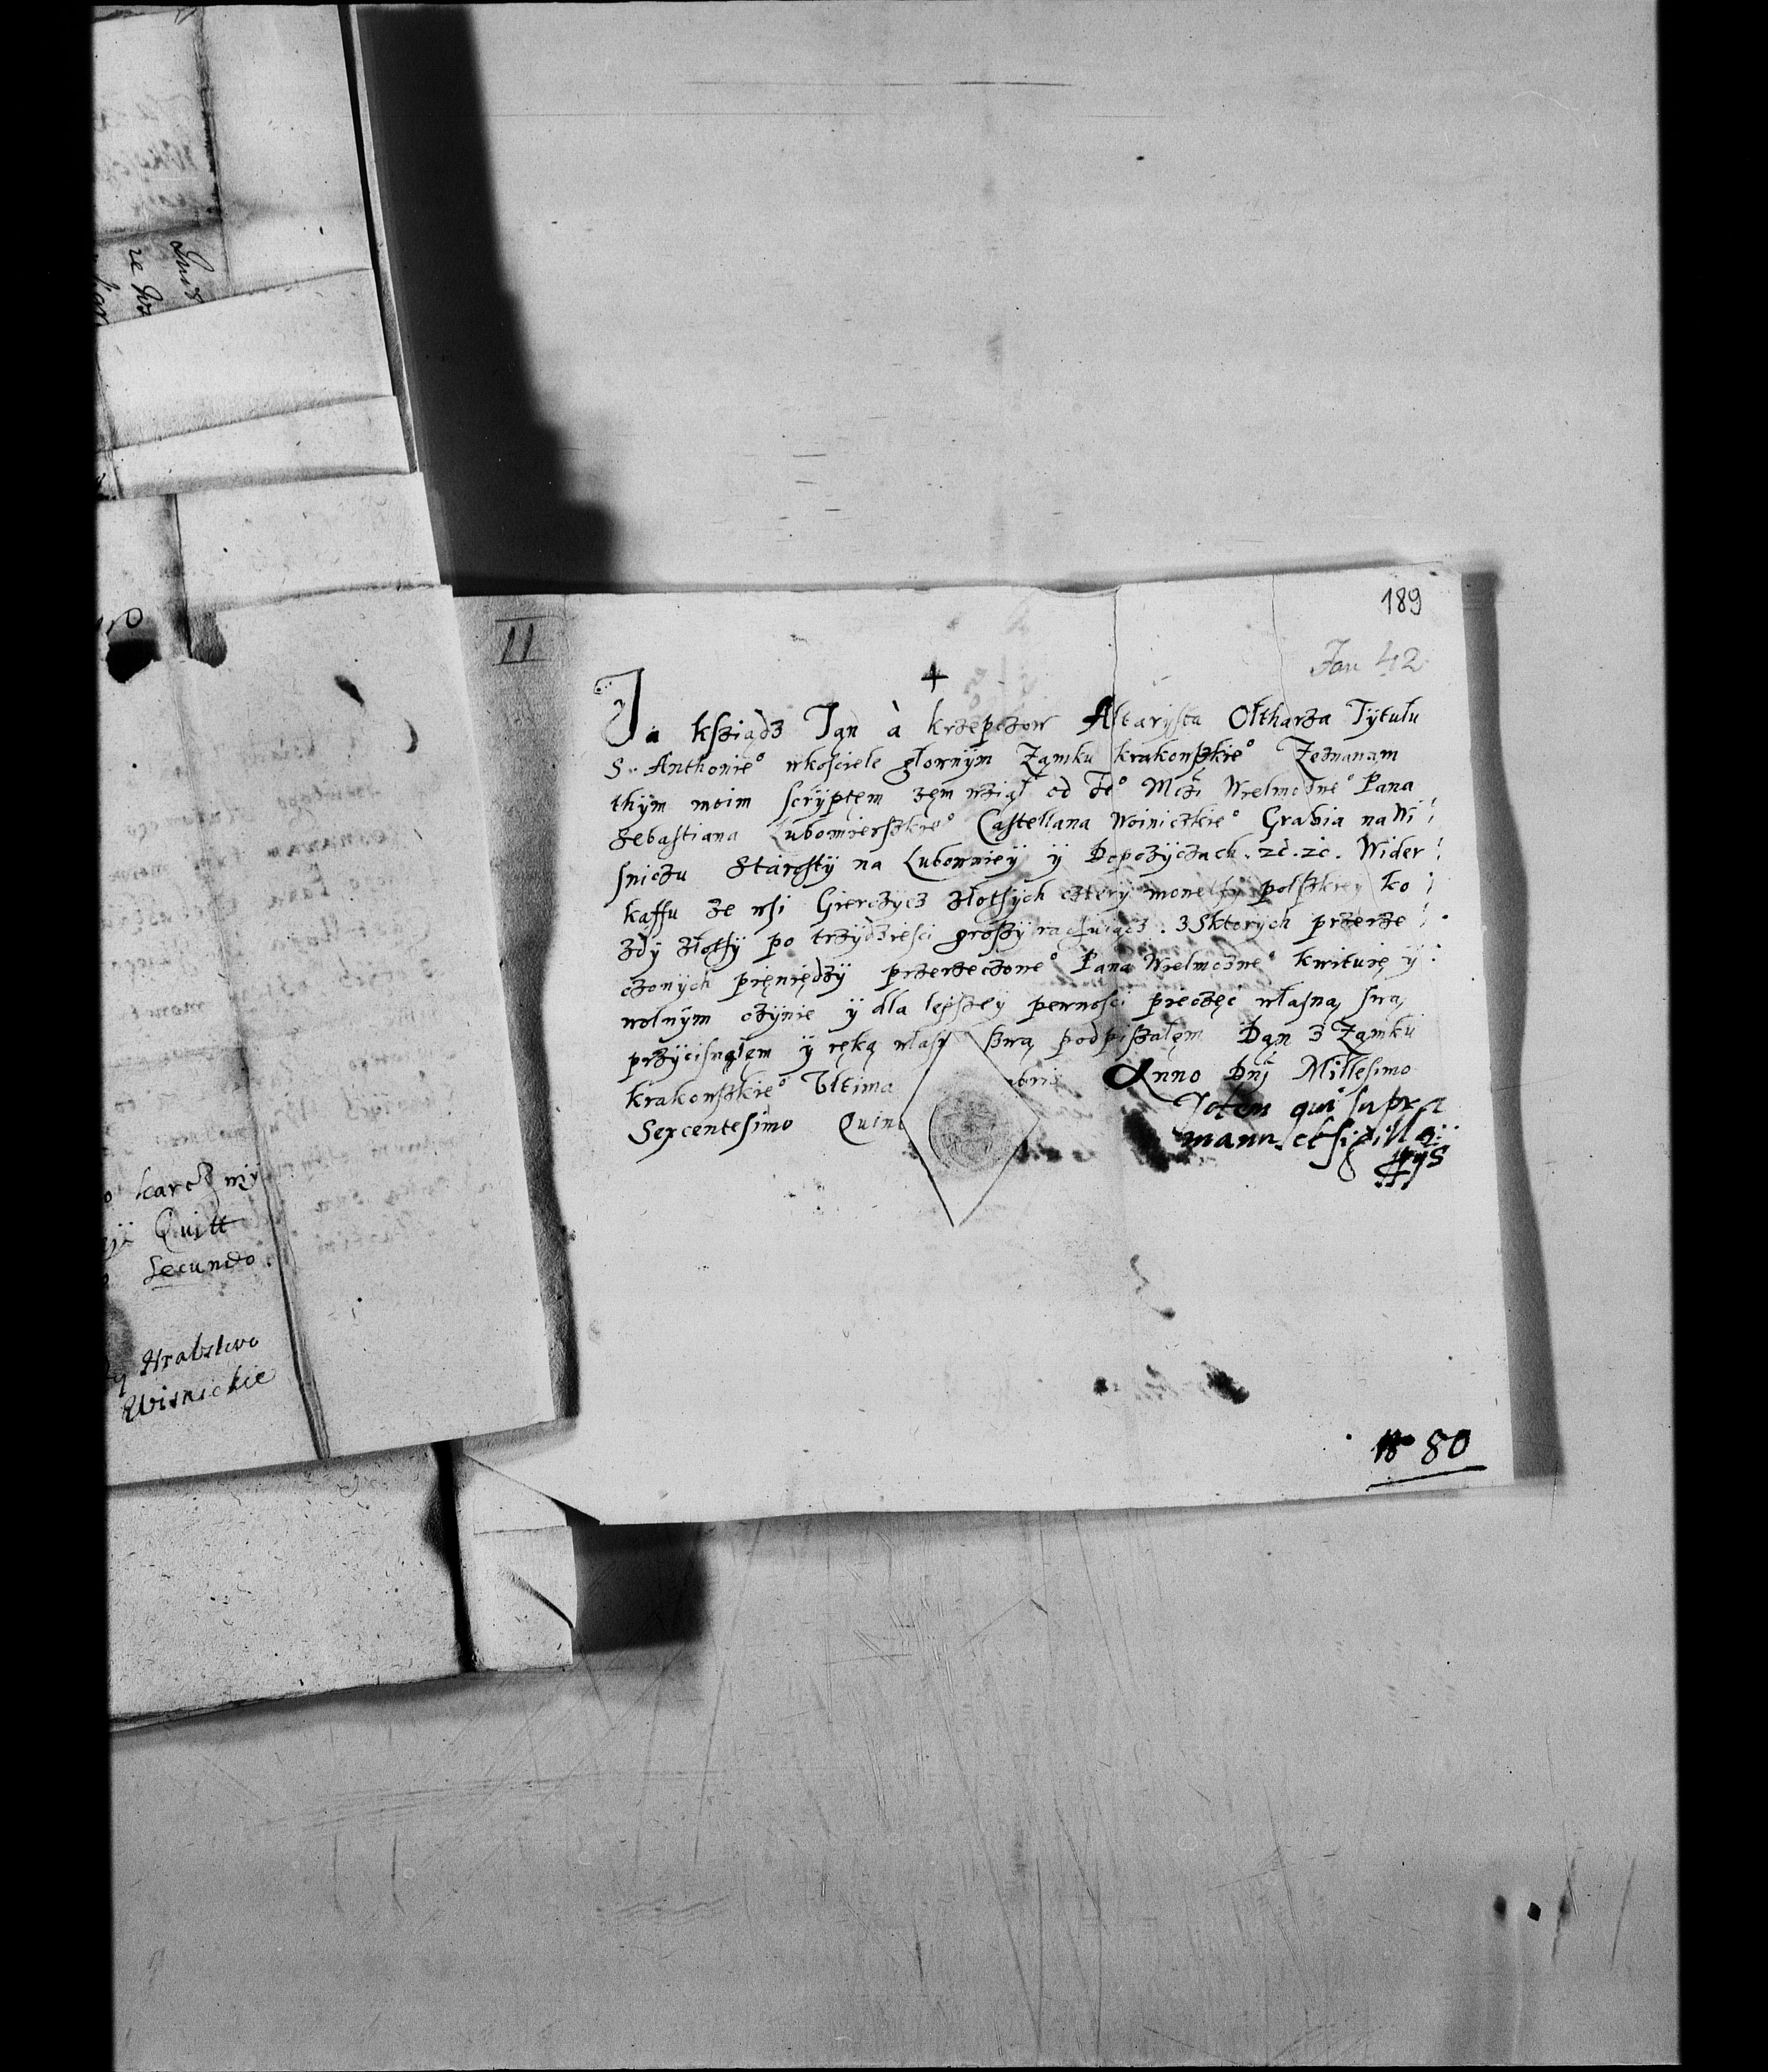 189
11
Jan 42
+
Ja kſziądz Jąn à krzepczow Altarÿſta Ołtharza Tÿtułu
S. Anthonie° wkościele głownÿm Zamku krakowſzkie° Zeznanąm
thÿm moim ſcrÿptęm zęm wziął od Je° Mczi Wielmożne° Pana
Zebaſtiana Lubomierſzkie° Caſtellana Woiniczkie° Grabia na Wi
ſniczu Staroſtÿ na Lubowniey ÿ Dopczÿczach. zc. zc. Wider
kaffu ze wſi Gierczÿcz złotÿch czterÿ monetÿ polſzkiey ko
zdÿ złotÿ po trzÿdzieſci groſzÿ rachuiącz. z Sktorÿch przerze
czonÿch pięniędzÿ przerzeczone° Pana Wielmożne° kwituię ÿ
wolnÿm czÿnie ÿ dla lepſzeÿ pewnoſci pieczęc właſną ſwą
przÿciſnąłęm ÿ ręką właſ ſzwą podpiſzałęm Dąn z Zamku
krakowſzkie° Ultima bris Anno Dnj Millesimo
Sexcentesimo Quin
Idem qui supra
manu et sigillo
ppÿs
80
karczmÿ
Quitt
Secundo.
Hrabstwo
Wisnickie